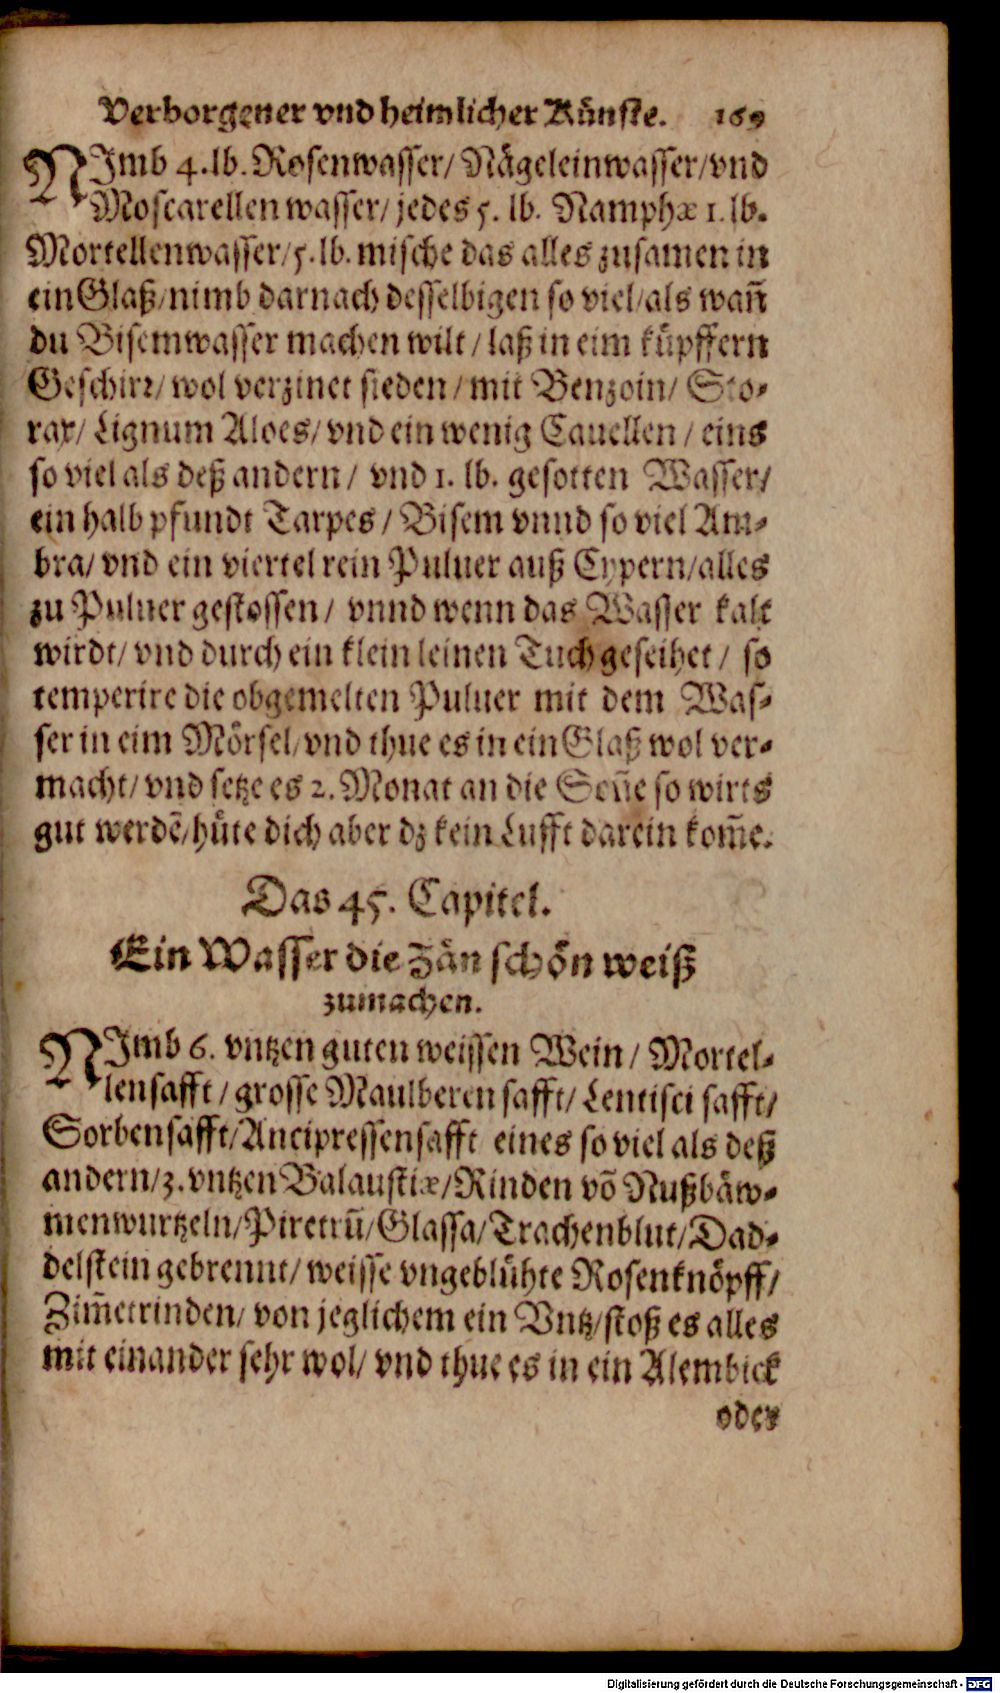 Verborgener vnd heimlicher Künste. 169
NImb 4. lb. Rosenwasser/ Nägeleinwasser/ vnd
Moscarellen wasser/ jedes 5. lb. Namphæ 1. lb.
Mortellenwasser/ 5. lb. mische das alles zusamen in
ein Glaß/ nimb darnach desselbigen so viel/ als wañ
du Bisemwasser machen wilt / laß in eim küpffern
Geschirr/ wol verzinet sieden / mit Benzoin/ Sto-
rax/ Lignum Aloes/ vnd ein wenig Cauellen / eins
so viel als deß andern / vnd 1. lb. gesotten Wasser/
ein halb pfundt Tarpes / Bisem vnnd so viel Am-
bra/ vnd ein viertel rein Puluer auß Cypern/ alles
zu Puluer gestossen / vnnd wenn das Wasser kalt
wirdt/ vnd durch ein klein leinen Tuch geseihet / so
temperire die obgemelten Puluer mit dem Was-
ser in eim Mörsel/ vnd thue es in ein Glaß wol ver-
macht/ vnd setze es 2. Monat an die Soñe so wirts
gut werdẽ/ hüte dich aber dz kein Lufft darein kom̃e.
Das 45. Capitel.
Ein Wasser die Zän schön weiß
zumachen.
NImb 6. vntzen guten weissen Wein / Mortel-
lensafft / grosse Maulberen safft/ Lentisci safft/
Sorbensafft/ Ancipressensafft eines so viel als deß
andern/ 3. vntzen Balaustiæ/ Rinden võ Nußbäw-
menwurtzeln/ Piretrũ/ Glassa/ Trachenblut/ Dad-
delstein gebrennt/ weisse vngeblühte Rosenknöpff/
Zim̃etrinden/ von jeglichem ein Vntz/ stoß es alles
mit einander sehr wol/ vnd thue es in ein Alembick
oder
Digitalisierung gefördert durch die Deutsche Forschungsgemeinschaft - DFG